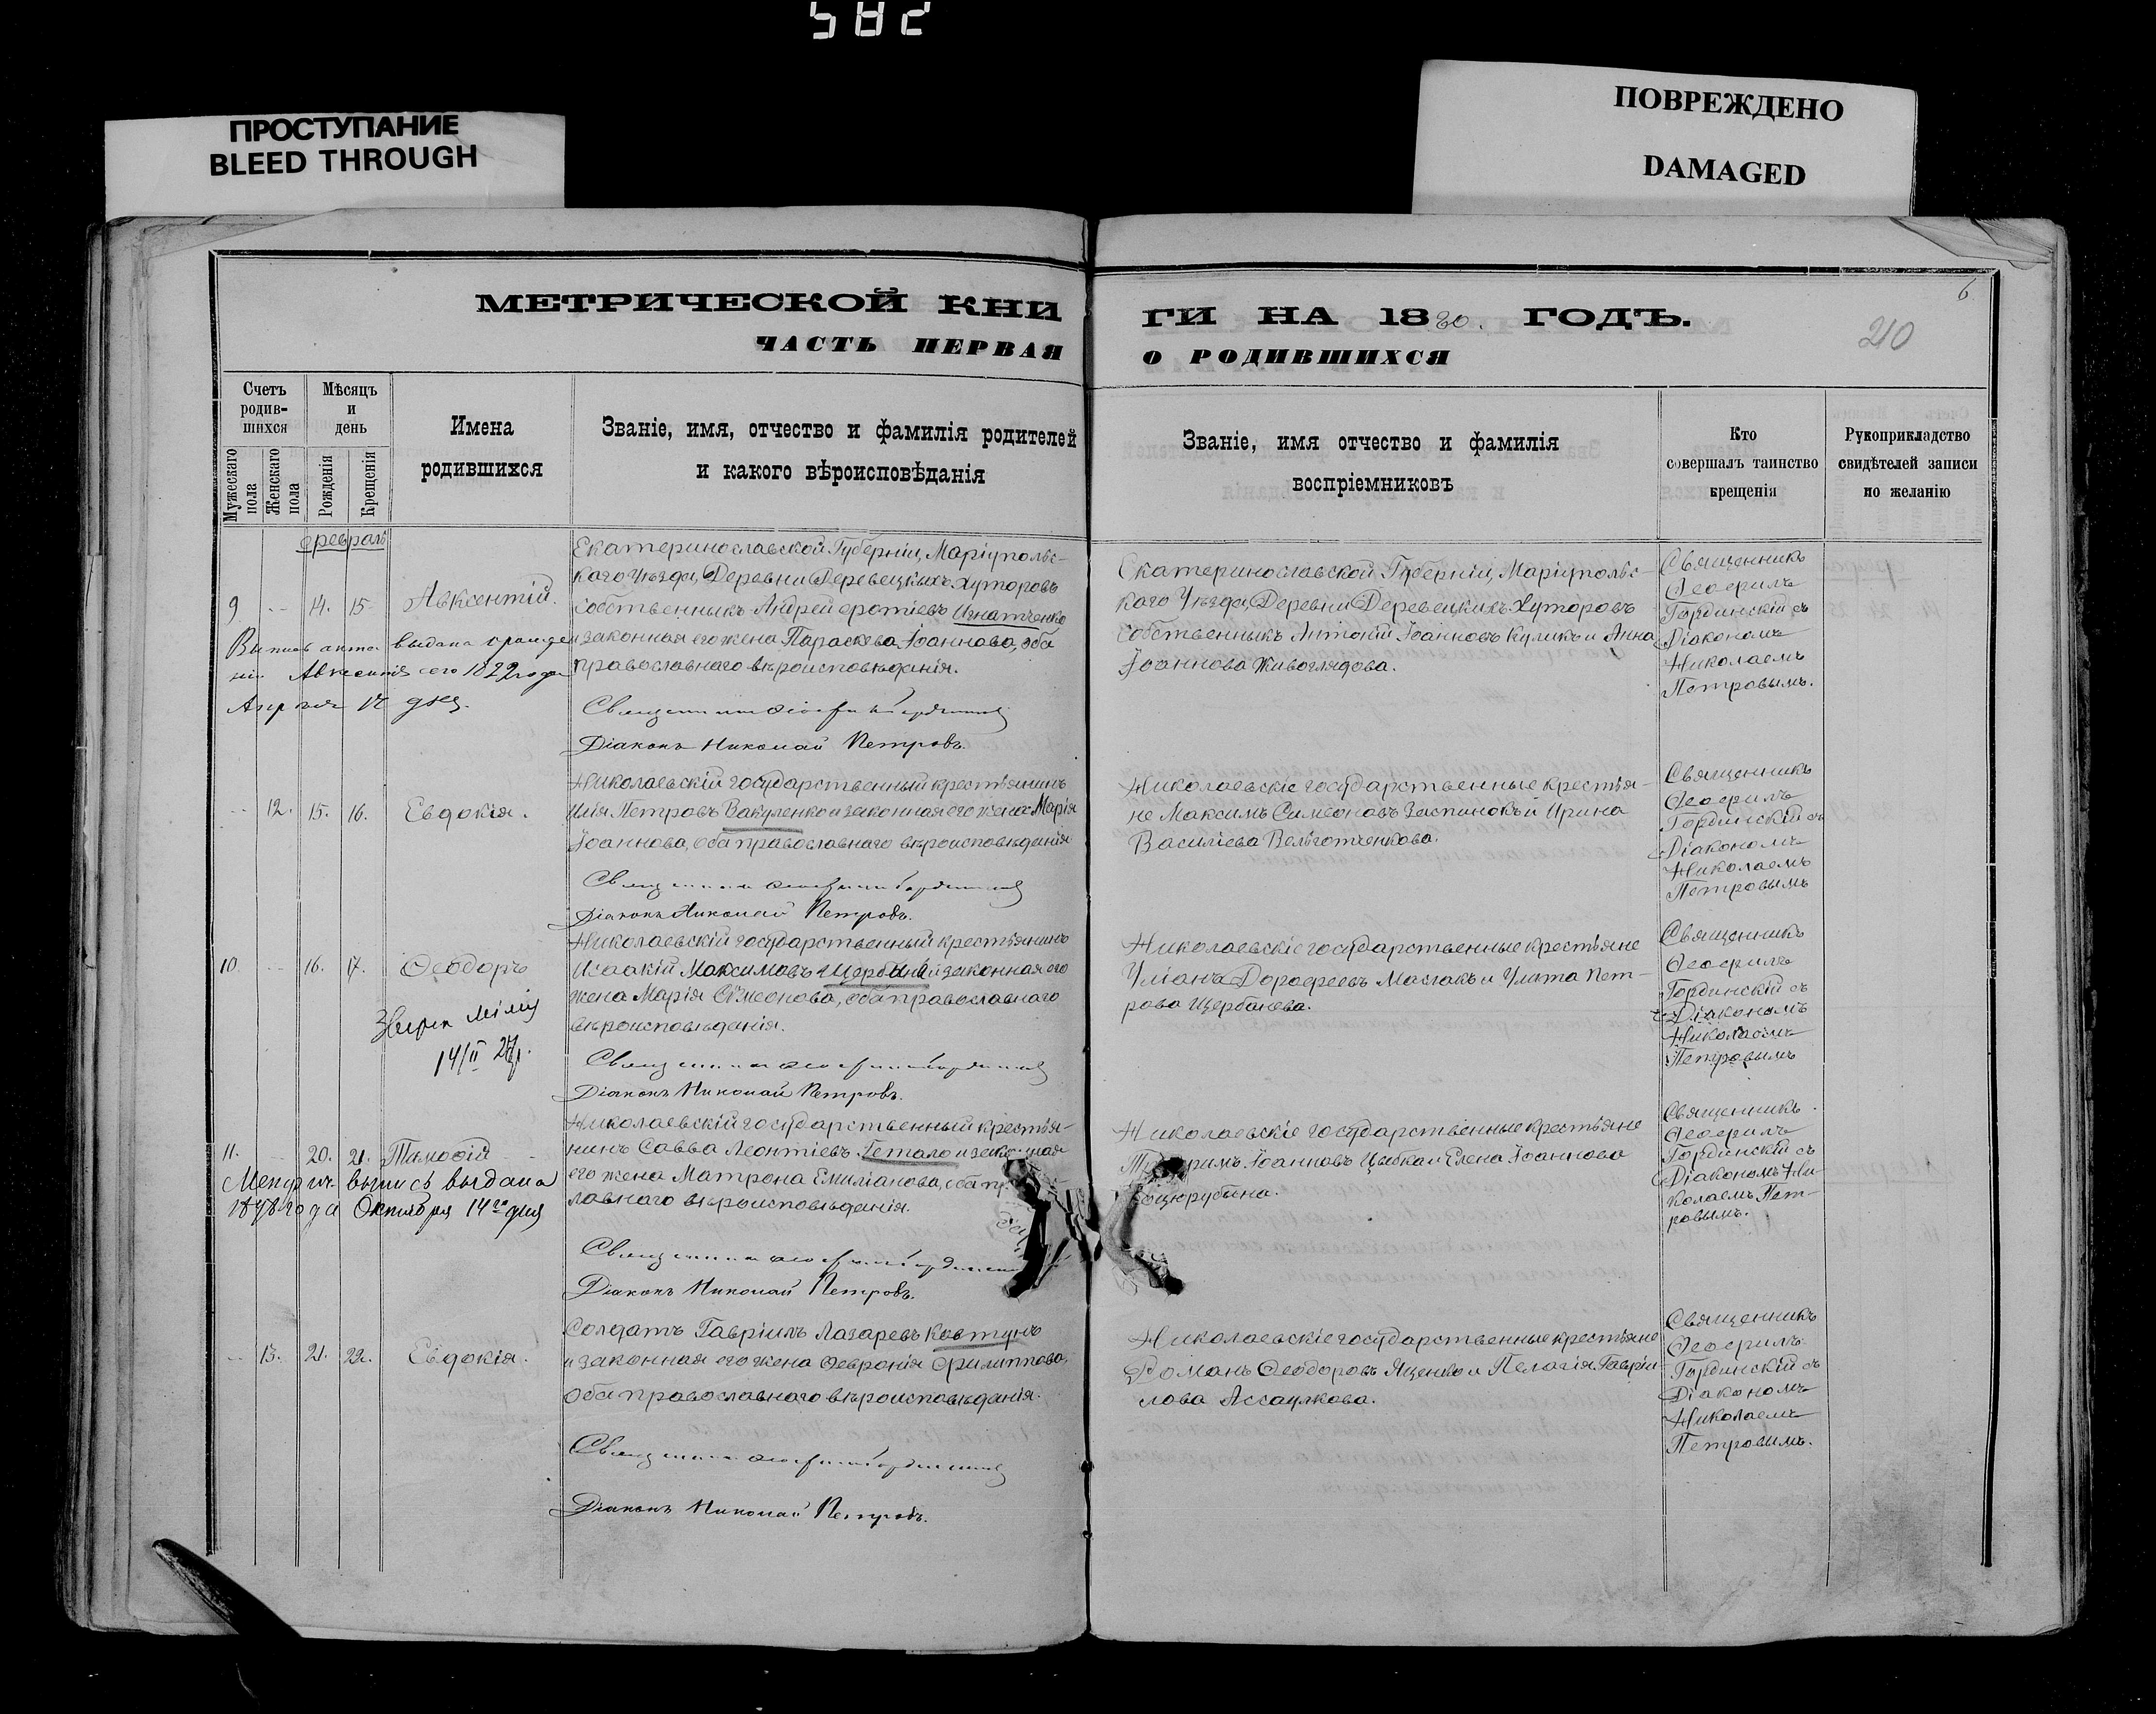 582
ПРОСТУПАНИЕ
BLEED THROUGH
ПОВРЕЖДЕНО
DAMAGED
6
210
МЕТРИЧЕСКОЙ КНИ
ГИ НА 1880. ГОДЪ.
ЧАСТЬ ПЕРВАЯ
О РОДИВШИХСЯ
Счетъ
родив-
шихся
Мужескаго
пола
Женскаго
пола
Мѣсяцъ
и
день
Рожденія
Крещенія
Имена
родившихся
Званіе, имя, отчество и фамилія родителей
и какого вѣроисповѣданія
Званіе, имя отчество и фамилія
воспріемниковъ
Кто
совершалъ таинство
крещенія
Рукоприкладство
свидѣтелей записи
по желанію
Февраль
9 14. 15. Авксентій.
Екатеринославской Губерніи, Маріупольс-
каго Уѣзда, Деревни Деревецкихъ Хуторовъ
собственникъ Андрей Фотіевъ Игнатченко
и законная его жена Параскева Іоаннова, оба
православнаго вѣроисповѣданія.
Діаконъ Николай Петровъ.
Выпись акта выдана о рожде
ніи Авксентія сего 1822 года
Апреля 12 дня.
Екатеринославской Губерніи, Маріупольс-
каго Уѣзда, Деревни Деревецкихъ Хуторовъ
собственникъ Антоній Іоанновъ Куликъ и Анна
Іоаннова Живоглядова.
Священникъ
Ѳеофилъ
Гординскій съ
Діакономъ
Николаемъ
Петровымъ.
12. 15. 16. Евдокія.
Николаевскій государственный крестьянинъ
Илія Петровъ Вакуленко и законная его жена Марія
Іоаннова, оба православнаго вѣроисповѣданія
Діаконъ Николай Петровъ.
Николаевскіе государственные крестья-
не Максимъ Симеоновъ и Ирина
Василіева
Священникъ
Ѳеофилъ
Гординскій съ
Діакономъ
Николаемъ
Петровымъ
10. 16. 17. Ѳеодоръ
Николаевскій государственный крестьянинъ
Исаакій Максимовъ Щербина и законная его
жена Марія Симеонова, оба православнаго
вѣроисповѣданія.
Діаконъ Николай Петровъ.
14/II 27 р.
Николаевскіе государственные крестьяне
Уліанъ Дорофеевъ Маслакъ и Улита Пет-
рова Щербинева.
Священникъ
Ѳеофилъ
Гординскій съ
Діакономъ
Николаемъ
Петровымъ
11. 20. 21. Тимофій
Николаевскій государственный крестья-
нинъ Савва Леонтіевъ Гетало и законная
его жена Матрона Емиліанова, оба пр
лавнаго вѣроисповѣданія.
Діаконъ Николай Петровъ.
Метрич выпись выдана
1898 года Октября 14го дня
Николаевскіе государственные крестьяне
Іоанновъ Цыбка и Елена Іоаннова
Священникъ
Ѳеофилъ
Гординскій съ
Діакономъ Ни-
колаемъ Пет-
ровымъ.
13. 21. 22. Евдокія.
Солдатъ Гавріилъ Лазаревъ Ковтунъ
и законная его жена Февронія Филиппова,
оба православнаго вѣроисповѣданія.
Діаконъ Николай Петровъ.
Николаевскіе государственные крестьяне
Романъ Ѳеодоровъ Яценко и Пелагія Гаврии-
лова Ассаулкова.
Священникъ
Ѳеофилъ
Гординскій съ
Діакономъ
Николаемъ
Петровымъ.